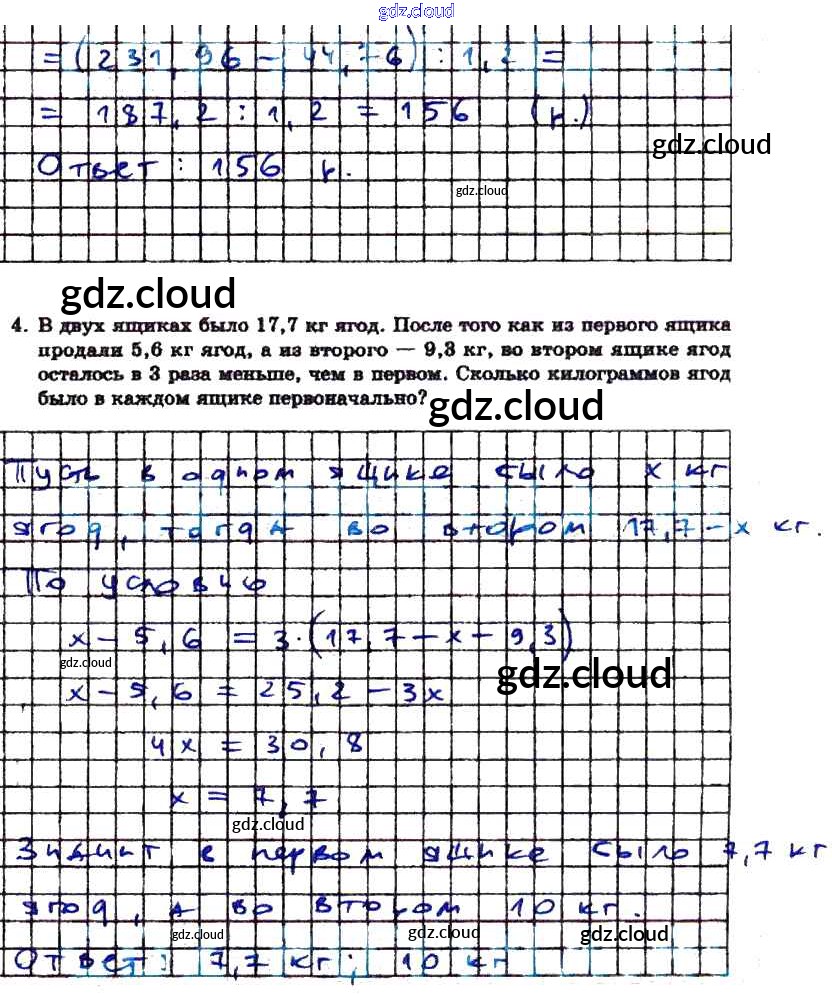 gdz.cloud
= (231,96 - 44,76) : 1,2 =
= 187,2 : 1,2 = 156 (р.)
gdz.cloud
Ответ: 156 р.
gdz.cloud
gdz.cloud
4. В двух ящиках было 17,7 кг ягод. После того как из первого ящика
продали 5,6 кг ягод, а из второго — 9,3 кг, во втором ящике ягод
осталось в 3 раза меньше, чем в первом. Сколько килограммов ягод
было в каждом ящике первоначально?
gdz.cloud
Пусть в одном ящике было x кг
ягод, тогда во втором 17,7-x кг.
По условию
x - 5,6 = 3·(17,7 - x - 9,3)
gdz.cloud
gdz.cloud
x - 5,6 = 25,2 - 3x
4x = 30,8
x = 7,7
gdz.cloud
Значит в первом ящике было 7,7 кг
ягод, а во втором 10 кг.
gdz.cloud gdz.cloud gdz.cloud
Ответ: 7,7 кг; 10 кг